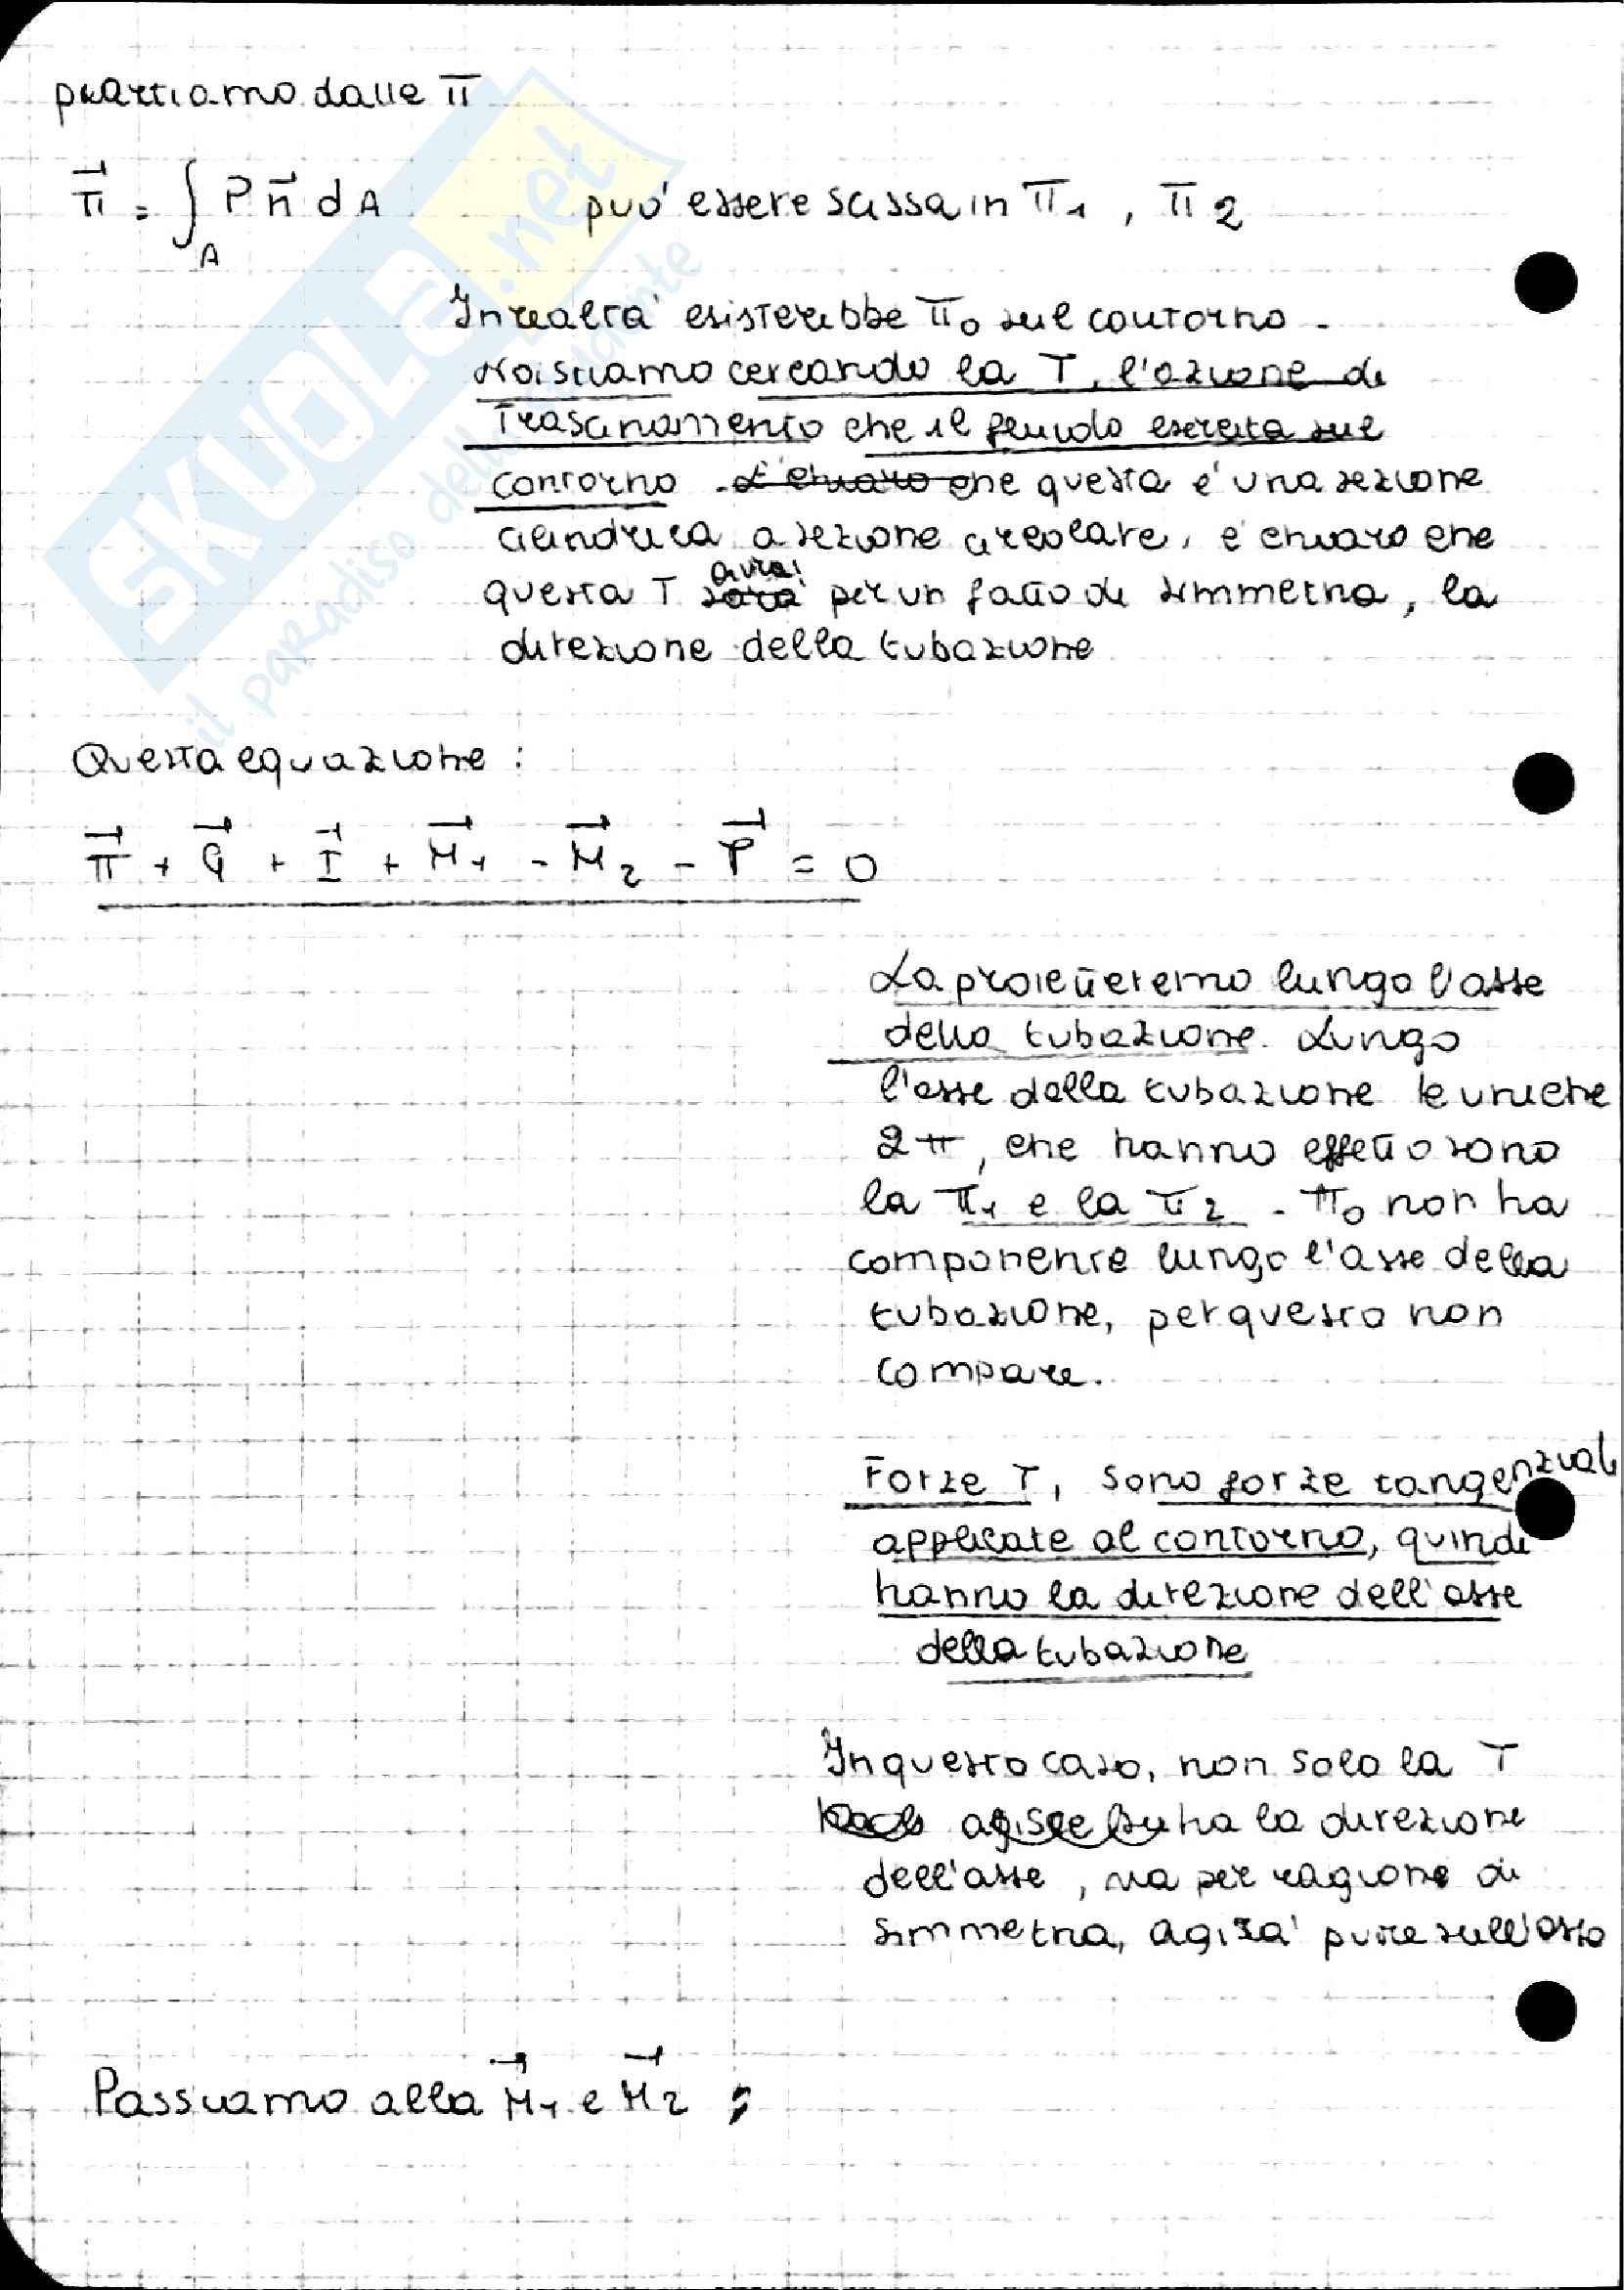 partiamo dalle π
π⃗ = ∫_A P n⃗ dA può essere scissa in π1, π2
In realtà esisterebbe π0 sul contorno.
Noi stiamo cercando la T, l'azione di
Trascinamento che il fluido esercita sul
contorno. È chiaro che questa è una sezione
cilindrica a sezione circolare, è chiaro che
avrà
questa T sarà per un fatto di simmetria, la
direzione della tubazione
Questa equazione :
π⃗ + G⃗ + I⃗ + M⃗1 - M⃗2 - T⃗ = 0
La proietteremo lungo l'asse
della tubazione. Lungo
l'asse della tubazione le uniche
2π, che hanno effetto sono
la π1 e la π2. π0 non ha
componente lungo l'asse della
tubazione, per questo non
compare.
Forze T, sono forze tangenziali
applicate al contorno, quindi
hanno la direzione dell'asse
della tubazione
In questo caso, non solo la T
agisce ha la direzione
dell'asse, ma per ragione di
simmetria, agirà pure sull'asse
Passiamo alla M⃗1 e M⃗2 :
SKUOLA.net
il paradiso dello